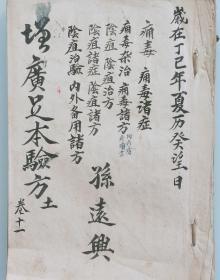 歲在丁巳年夏历癸望日
痈毒 痈毒诸症
痈毒杂治 痈毒诸方
陰疽 陰疽治方
陰疽諸症 陰疽諸方
陰疽治驗 内外备用諸方
孫遠興
增廣足本驗方
卷十一